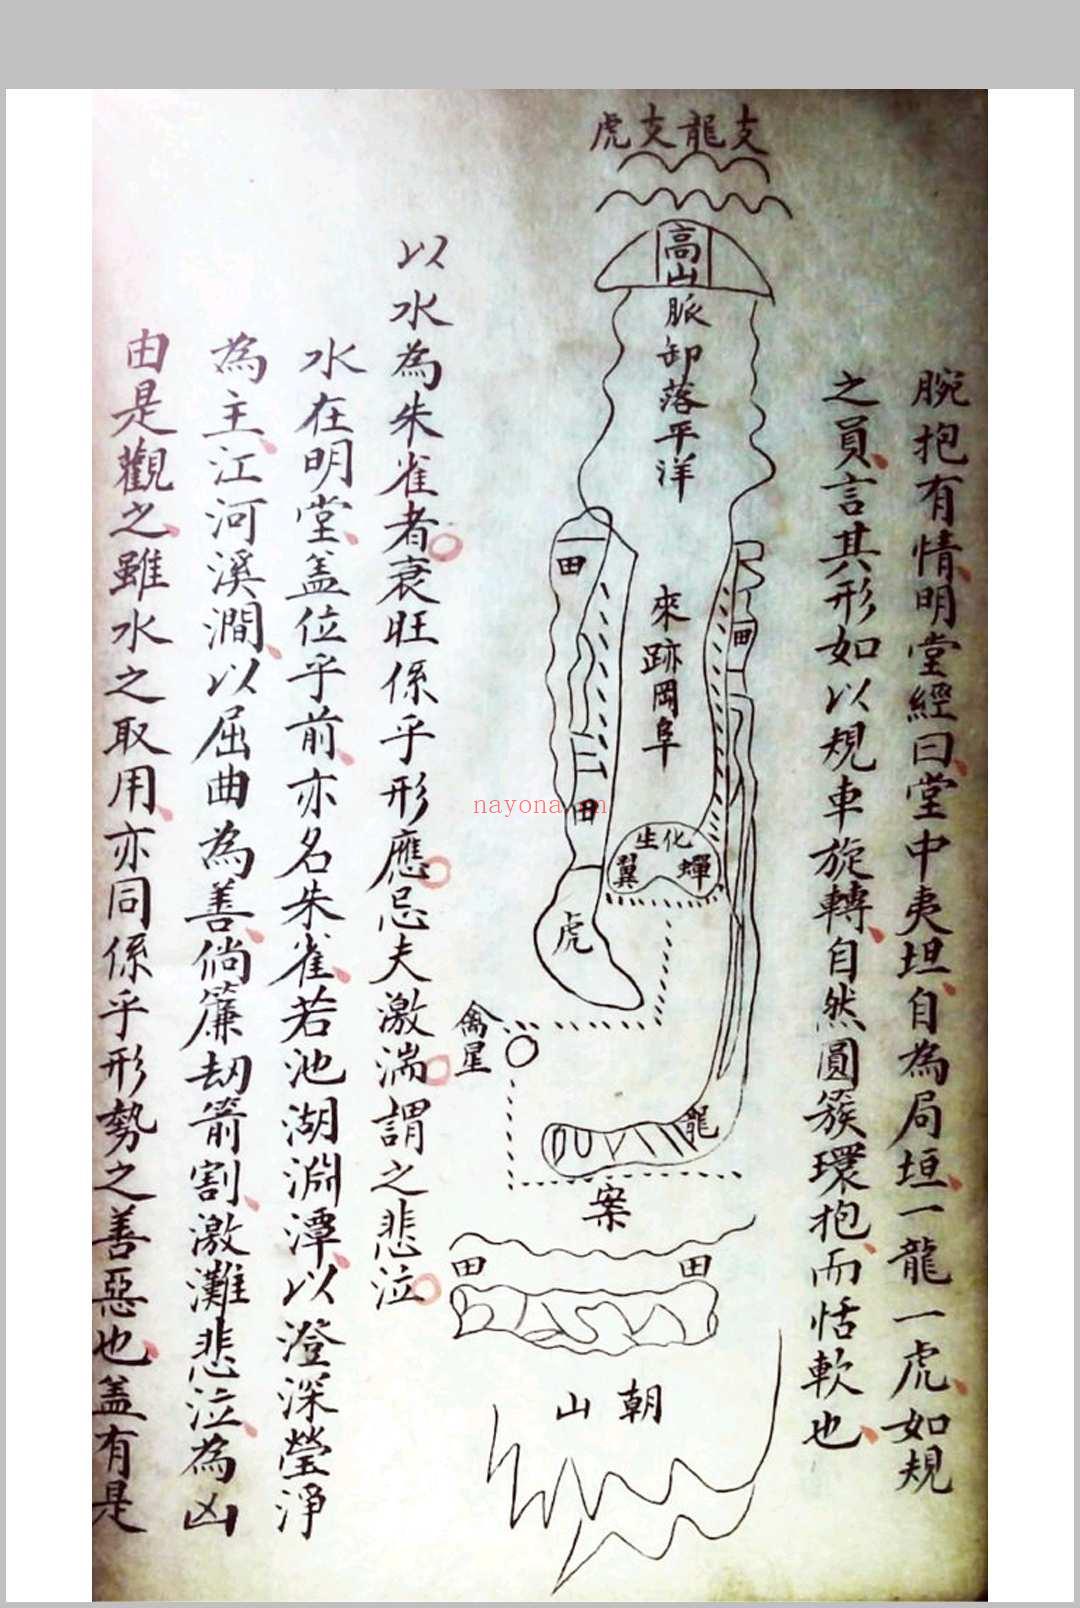 腕抱有情明堂經曰堂中夷坦自為局垣一龍一虎如規
之員言其形如以規車旋轉自然圓簇環抱而恬軟也
虎支龍支
高山脈卸落平洋
來跡岡阜
田
田
田
生化
翼蟬
虎
禽星
龍
案
田
田
朝山
以水為朱雀者衰旺係乎形應忌夫激湍謂之悲泣
水在明堂盖位乎前亦名朱雀若池湖淵潭以澄深瑩淨
為主江河溪澗以屈曲為善倘簾劫箭割激灘悲泣為凶
由是觀之雖水之取用亦同係乎形勢之善惡也盖有是
nayona.cn